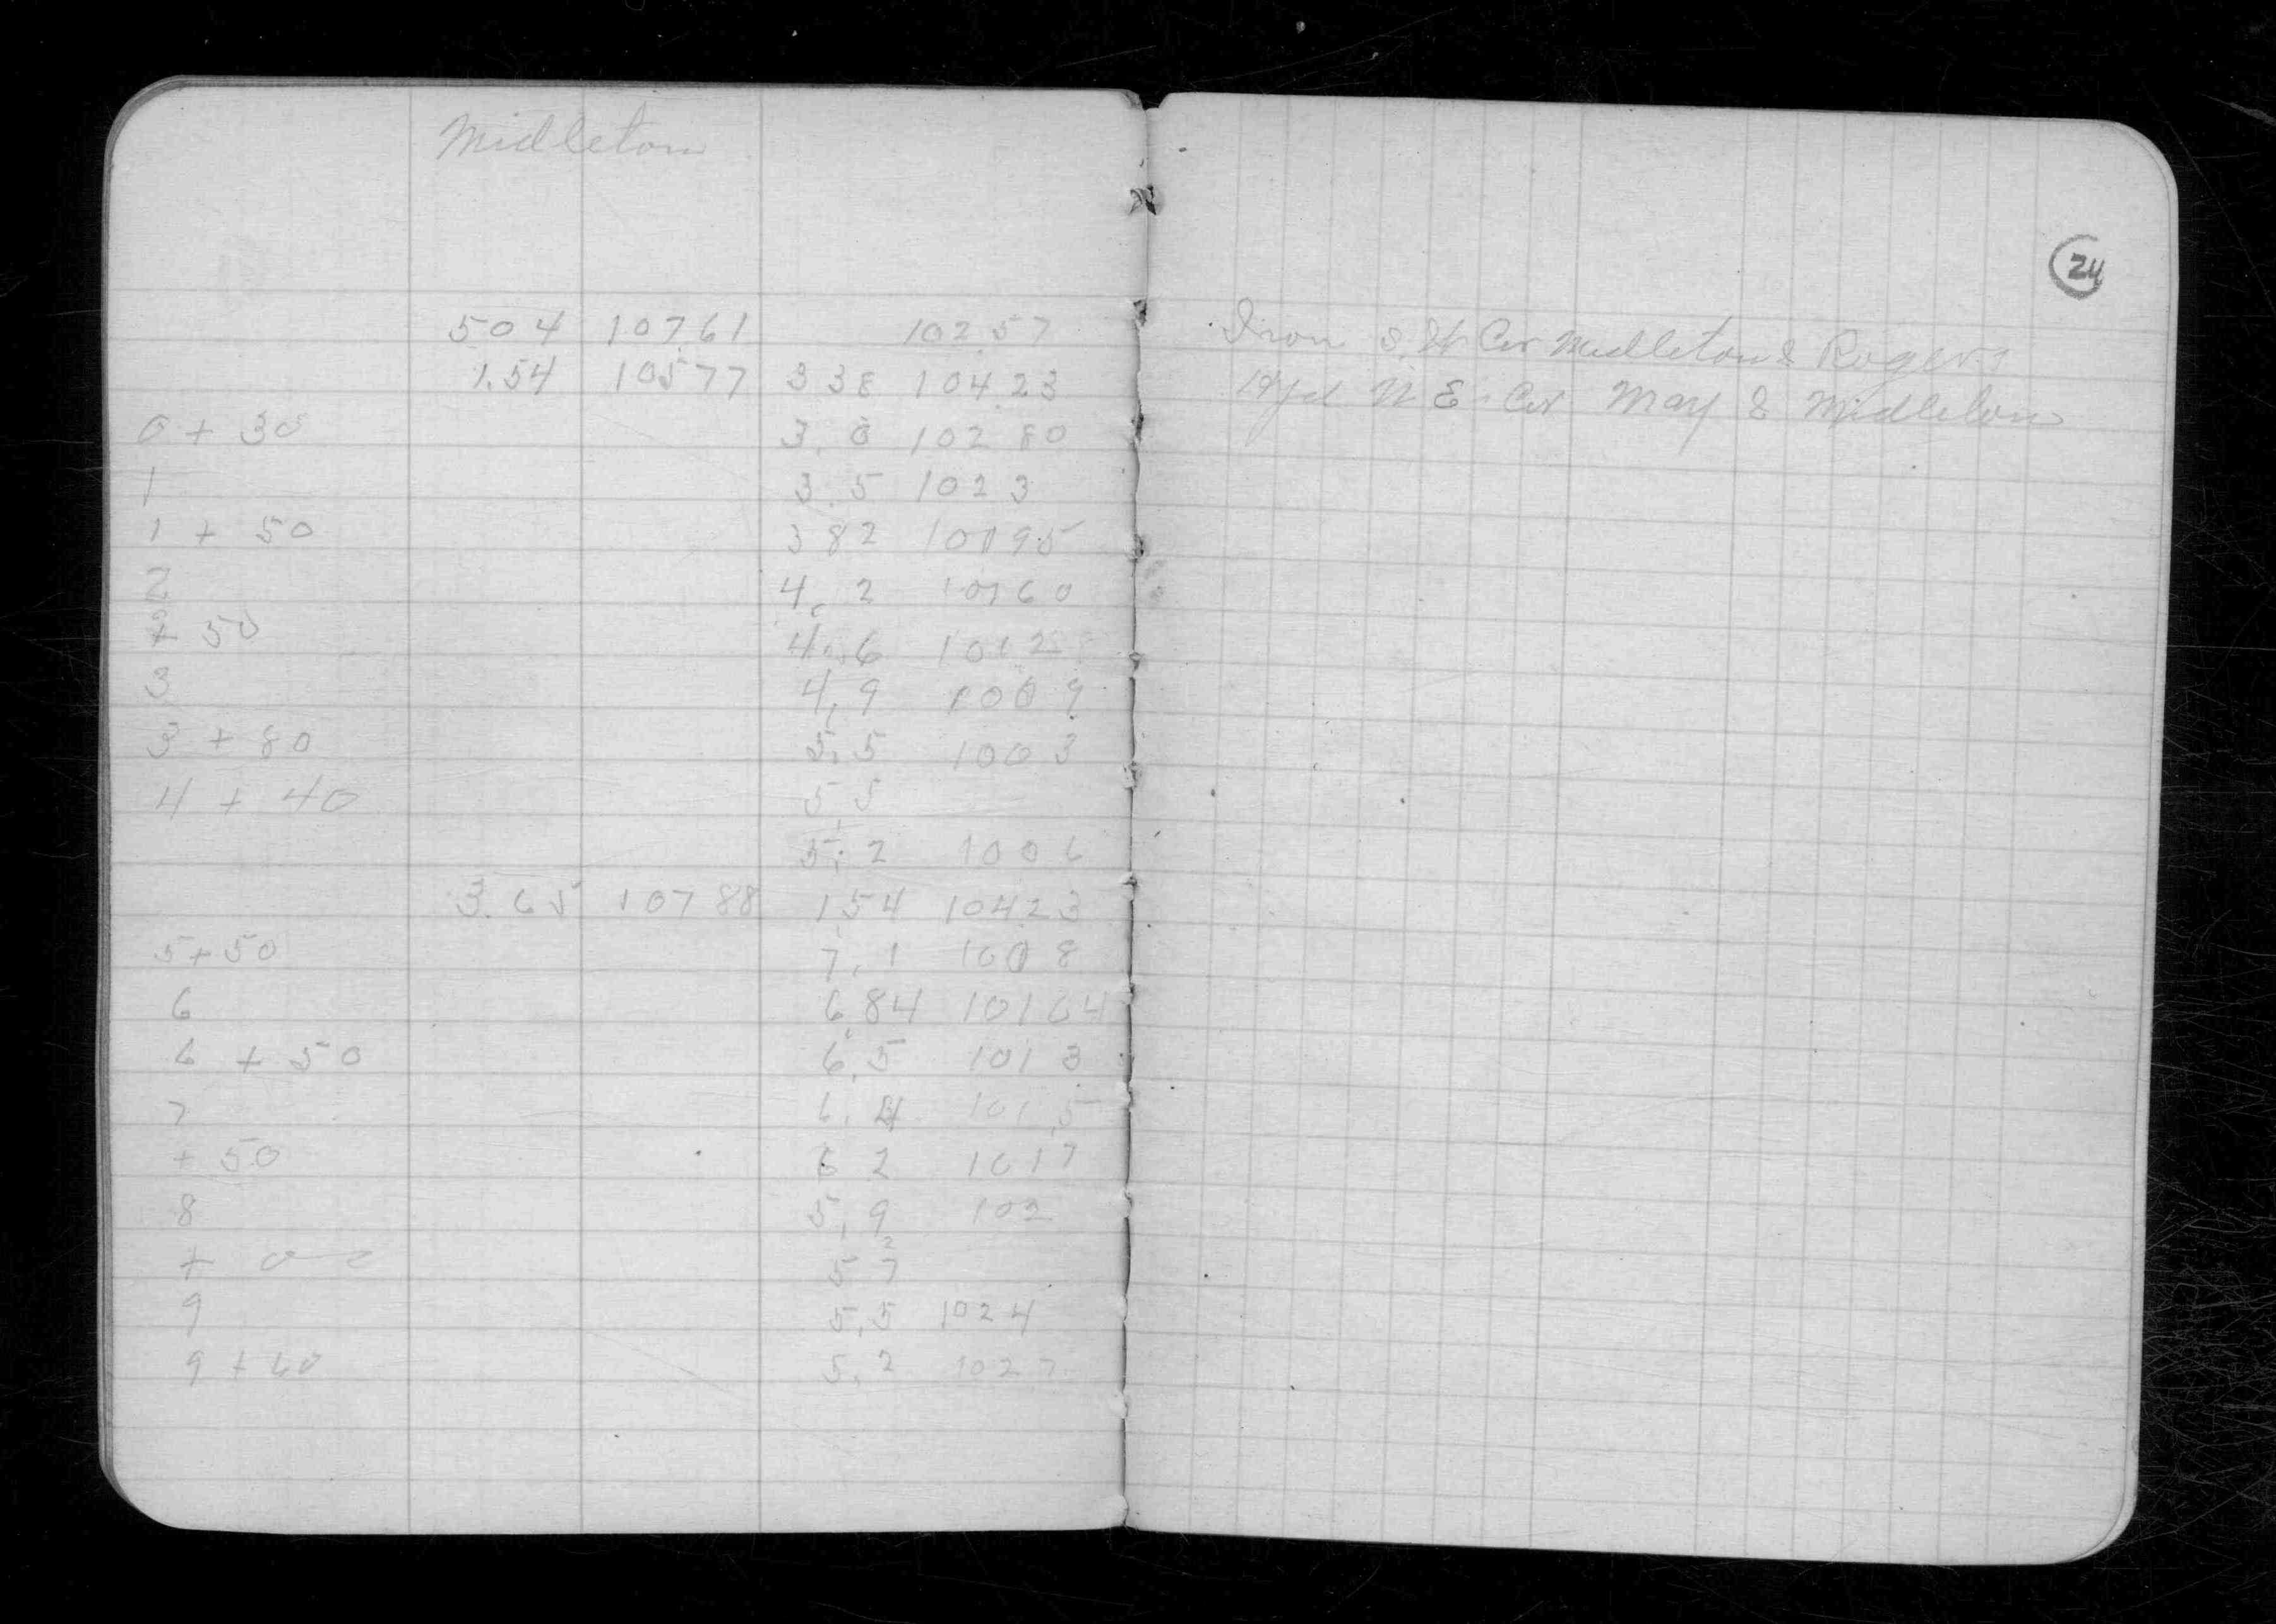 Midleton
504 107.61 102.57
1.54 10577 338 104.23
0 + 30 3.0 102 80
1 3.5 102 3
1 + 50 382 10195
2 4.2 10160
+ 50 4.6 1012
3 4.9 100 9
3 + 80 5.5 100 3
4 + 40 5.5
5.2 100 6
3.65 107 88 1.54 104.23
5+50 7.1 100 8
6 6.84 101 04
6 + 50 6.5 101 3
7 6.4 101.5
+ 50 6 2 101 7
8 5.9 102
+ 5 7 2
9 5.5 102 4
9 + 60 5.2 102 7
24
Iron S.W Cor Midleton & Rogers
Hyd N E. Cor May & Midleton